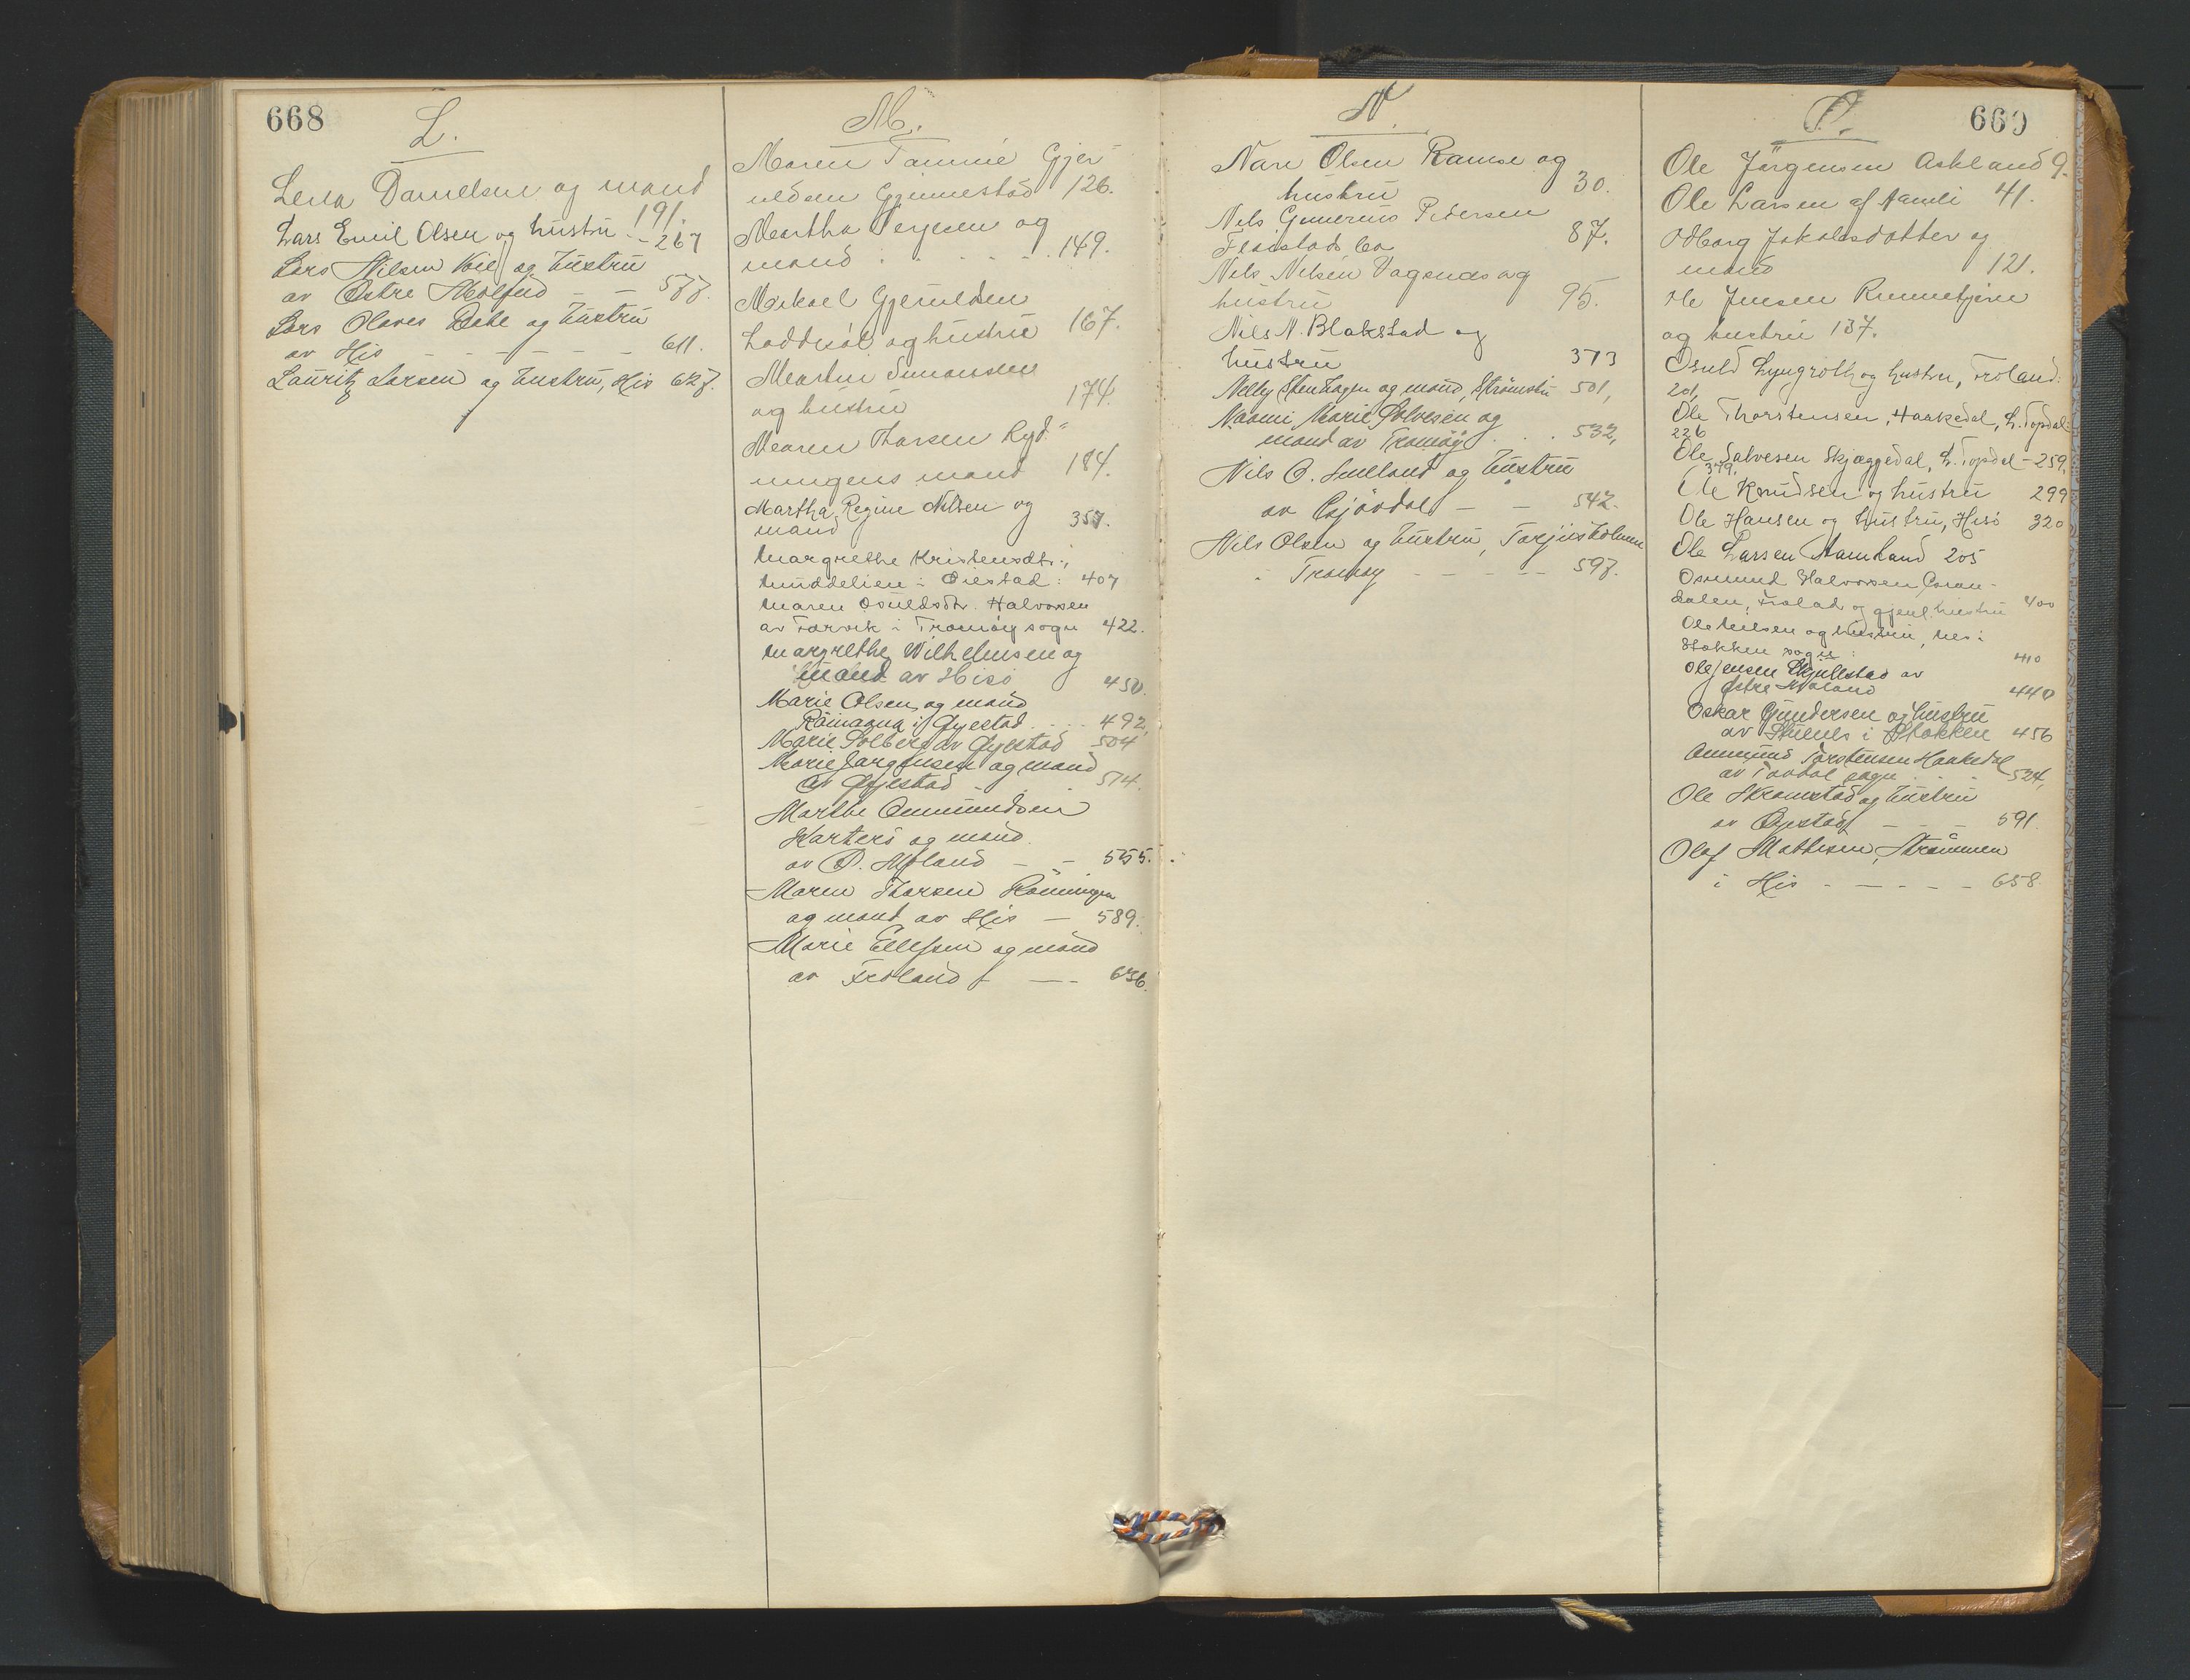 668
L.
Lena Danielsen og mand
191.
Lars Emil Olsen og hustru - 267
Lars Nilsen og hustru
av Østre Moland — — 577.
Lars Olaves Dahl og hustru
av His — — — — — 611.
Lauritz Larsen og hustru, His 627.
M.
Maren Tamine Gjer-
uldsen Gjennestad 126.
Martha Terjesen og
mand . . . . . . 149.
Mikael Gjeruldsen
Loddesøl og hustru 167.
Martin Simonsen
og hustru 174.
Maren Thorsen Ryd-
ningens mand 184.
Martha Regine Nilsen og
mand 357.
Margrethe Kristensdtr. i
Muddelien i Øiestad: 407
Maren Osuldsdtr. Halvorsen
av Færvik i Tromøy sogn 422.
Margrethe Wilhelmsen og
mand av Hisø 450.
Marie Olsen og mand
i Øyestad . . . 492,
Marie Solberg av Øyestad 504
Marie Jørgensen og mand
av Øyestad - - 514.
Marthe Ommundsen
og mand
av Ø. Moland — — 555.
Maren Thorsen Rønningen
og mand av His — 589.
Marie Ellefsen og mand
av Froland — — 636.
N.
Nære Olsen Ramse og
hustru 30.
Nils Gunerius Pedersen
Flaistads bo 87.
Nils Nilsen Vagsnes og
hustru 95.
Nils N. Blakstad og
hustru 373
Nelly Stenhagen og mand, Strømsbu 501,
Naomi Marie Solvesen og
mand av Tromøy . . . 532,
Nils O. Smeland og hustru
av Gjøvdal — — 542.
Nils Olsen og hustru, Torjusholmen
Tromøy — — — — 597.
O.
669
Ole Jörgensen Askland 9.
Ole Larsen af Aamli 41.
Odborg Jakobsdatter og
mand 121.
Ole Jensen Rennetjern
og hustru 137.
Osuld Lyngroth og hustru, Froland:
201,
Ole Thorstensen, Haakedal, H. Topdal:
226
Ole Salvesen Skjeggedal, H. Topdal - 259,
379.
Ole Knudsen og hustru 299
Ole Hansen og hustru, Hisö 320
Ole Larsen Namland 205
Osmund Halvorsen
dalen, Frolad og gjenl. hustru 400
Ole Nilsen og hustru, Nes i
Stokken sogn: 410
Ole Jensen Skjulestad av
Østre Moland 440
Oskar Gundersen og hustru
av i Stokken 456
Ommund Torstensen Haakedal
av Tovdal sogn . . 524,
Ole Skramstad og hustru
av Øyestad — — — 591.
Olaf Mathisen, Strømmen
i His - — - - - 658.